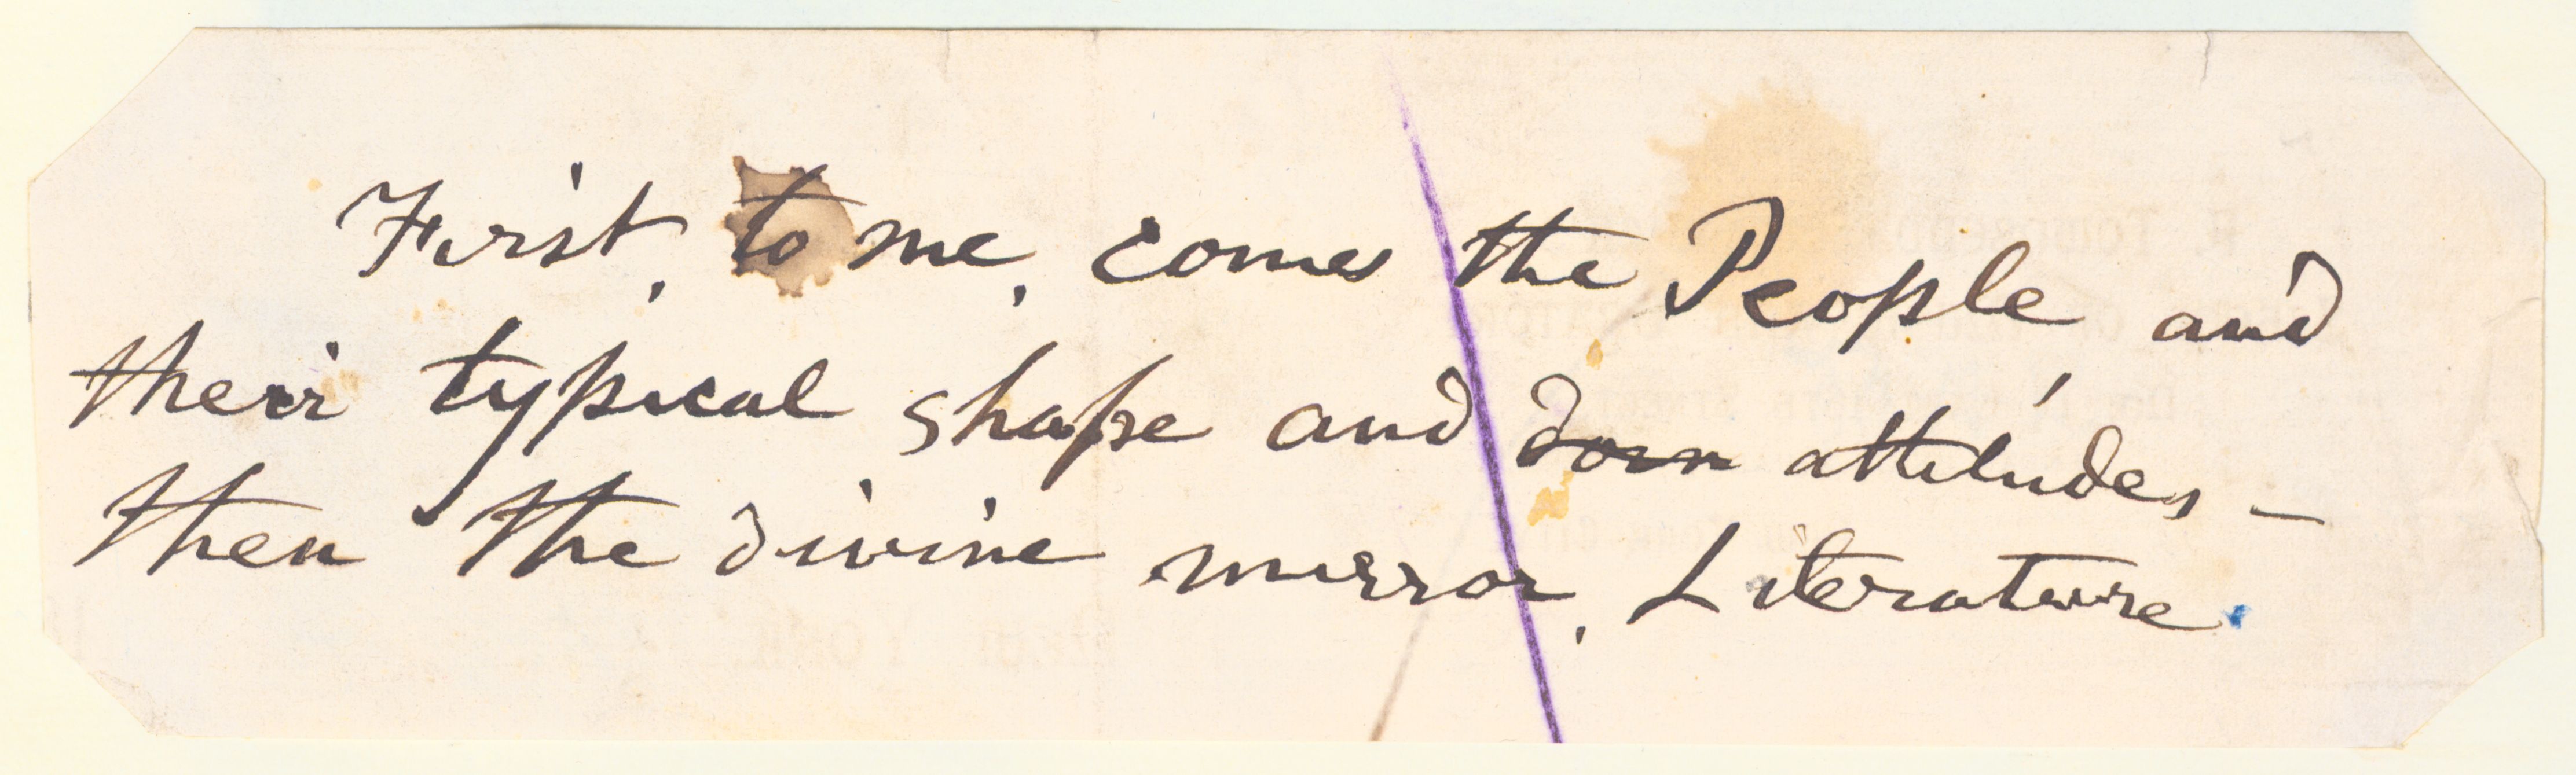 First, to me, comes the People, and
their typical shape and down attitudes, —
then the divine mirror, Literature.